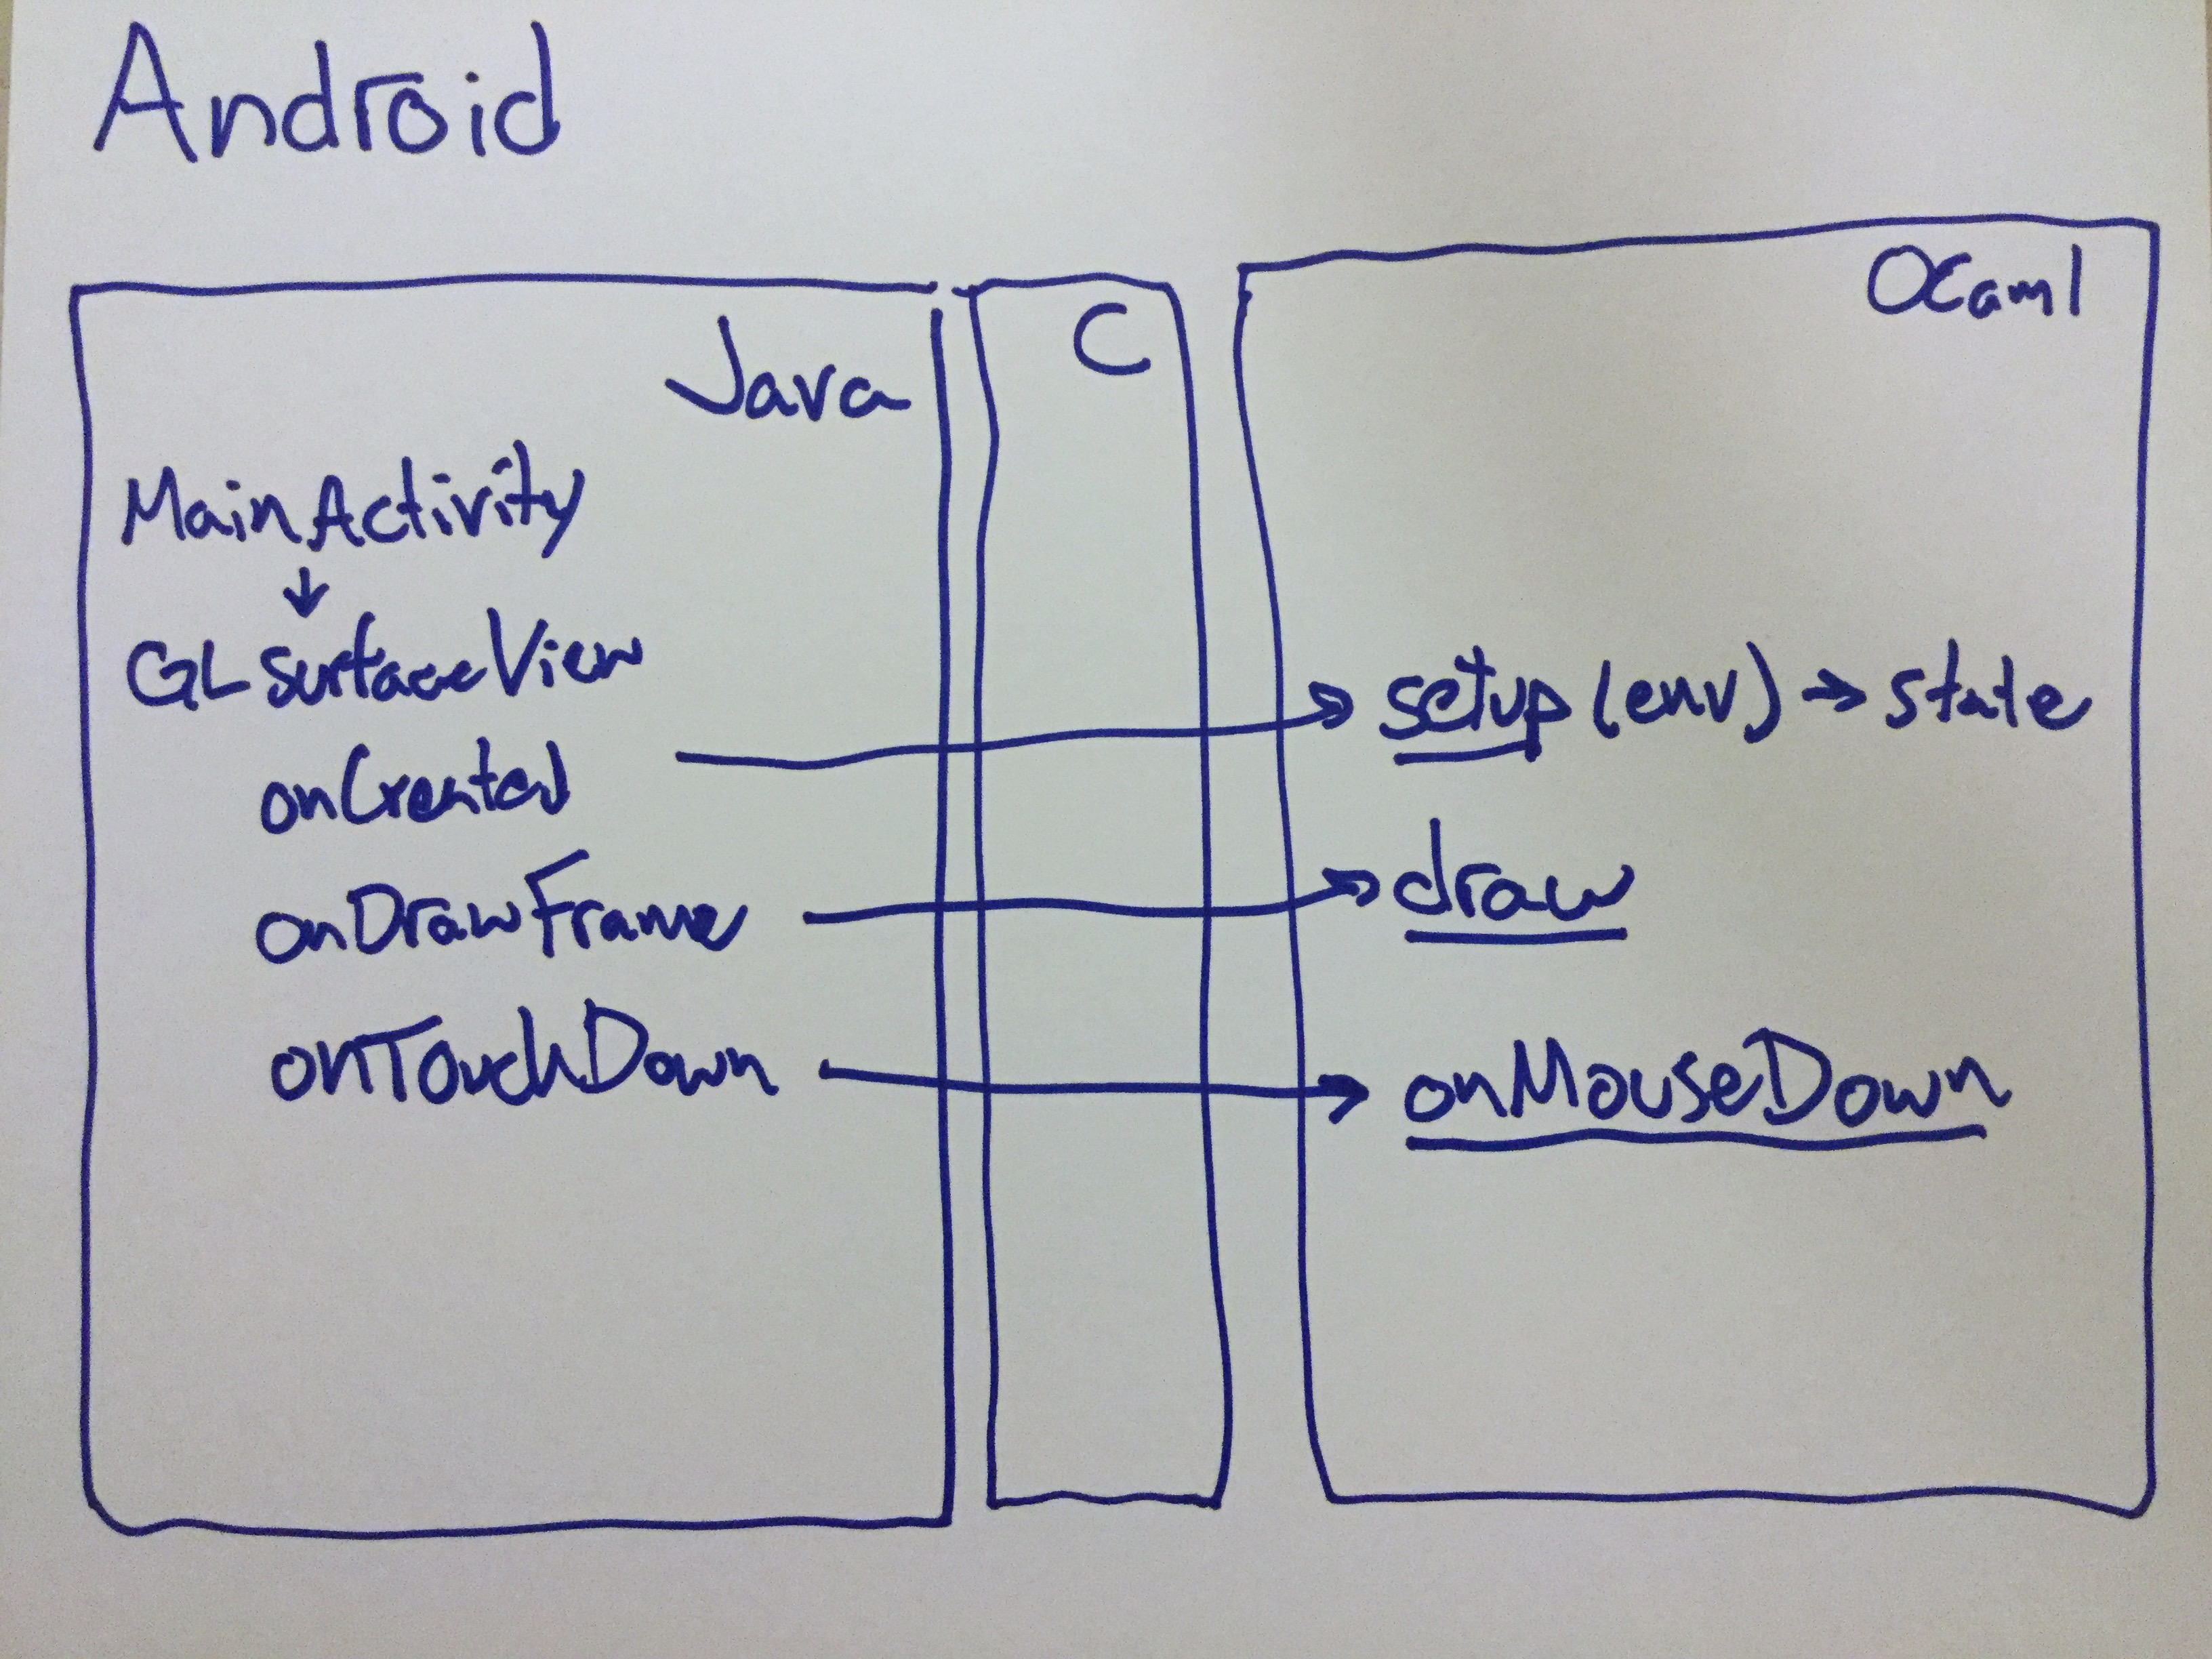 Android
Java
MainActivity
↓
GLsurfaceView
onCreated
onDrawFrame
onTouchDown
C
OCaml
setup (env) → state
draw
onMouseDown